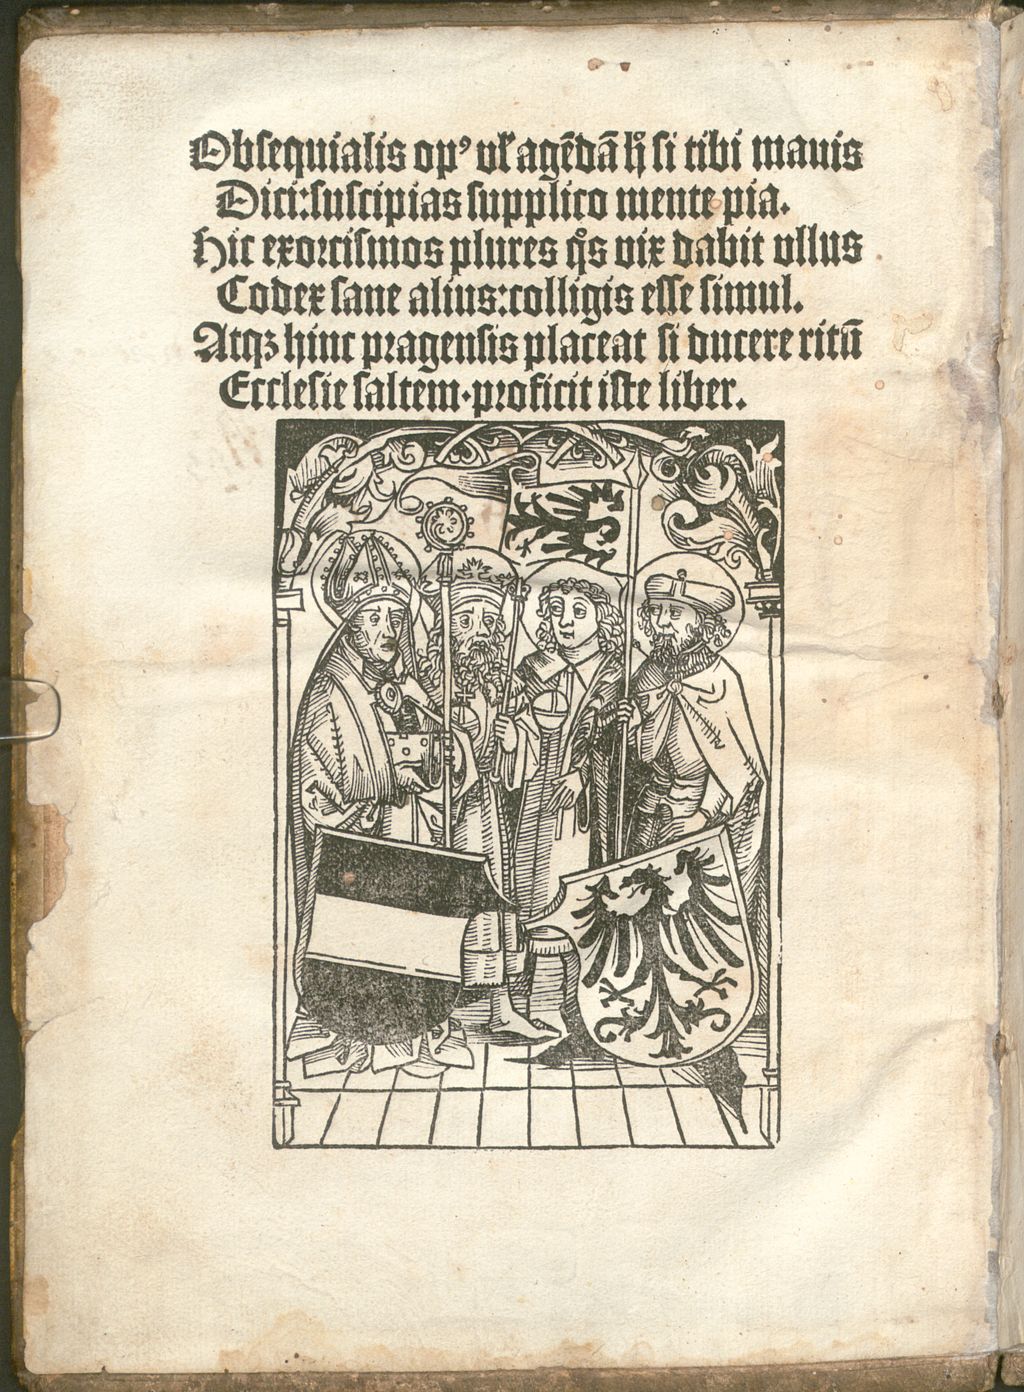 Obsequialis opꝰ vľ agẽdã hͦ si tibi mauis
Dici: suscipias supplico mente pia.
Hic exorcismos plures qͦs vix dabit vllus
Codex sane alius: colligis esse simul.
Atqꝫ hinc pragensis placeat si ducere ritũ
Ecclesie saltem. proficit iste liber.